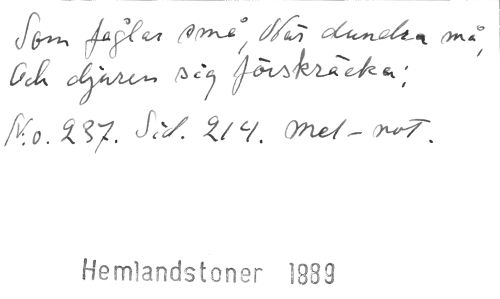 Som foglar små, När dundra må,
Och djuren sig förskräcka;
No. 237. Sid. 214. mel-not.
Hemlandstoner 1889